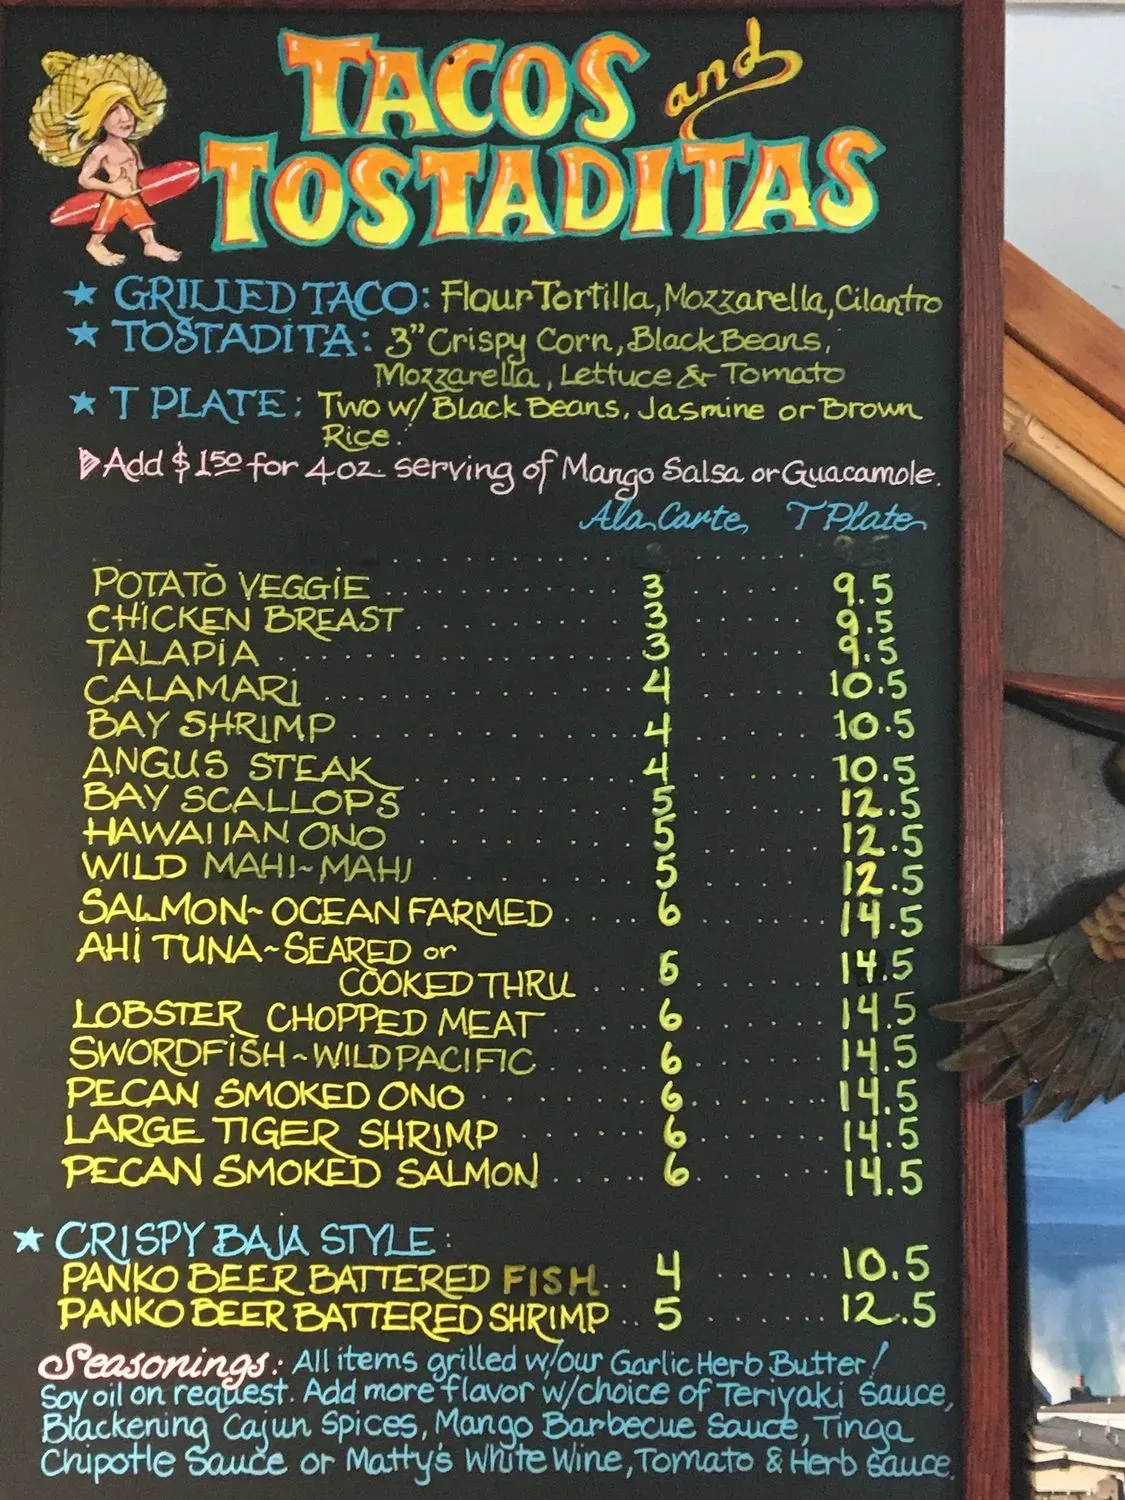 TACOS and
TOSTADITAS
★ GRILLED TACO: Flour Tortilla, Mozzarella, Cilantro
★ TOSTADITA: 3" Crispy Corn, Black Beans,
Mozzarella, Lettuce & Tomato
★ T PLATE: Two w/ Black Beans, Jasmine or Brown
Rice.
Add $1.50 for 4oz. serving of Mango Salsa or Guacamole.
Ala Carte T Plate
POTATO VEGGIE 3 9.5
CHICKEN BREAST 3 9.5
TALAPIA 3 9.5
CALAMARI 4 10.5
BAY SHRIMP 4 10.5
ANGUS STEAK 4 10.5
BAY SCALLOPS 5 12.5
HAWAIIAN ONO 5 12.5
WILD MAHI~MAHI 5 12.5
SALMON~OCEAN FARMED 6 14.5
AHI TUNA~SEARED or
COOKED THRU 6 14.5
LOBSTER CHOPPED MEAT 6 14.5
SWORDFISH~WILD PACIFIC 6 14.5
PECAN SMOKED ONO 6 14.5
LARGE TIGER SHRIMP 6 14.5
PECAN SMOKED SALMON 6 14.5
★ CRISPY BAJA STYLE:
PANKO BEER BATTERED FISH 4 10.5
PANKO BEER BATTERED SHRIMP 5 12.5
Seasonings: All items grilled w/our Garlic Herb Butter!
Soy oil on request. Add more flavor w/choice of Teriyaki Sauce,
Blackening Cajun Spices, Mango Barbecue Sauce, Tinga
Chipotle Sauce or Matty's White Wine, Tomato & Herb Sauce.